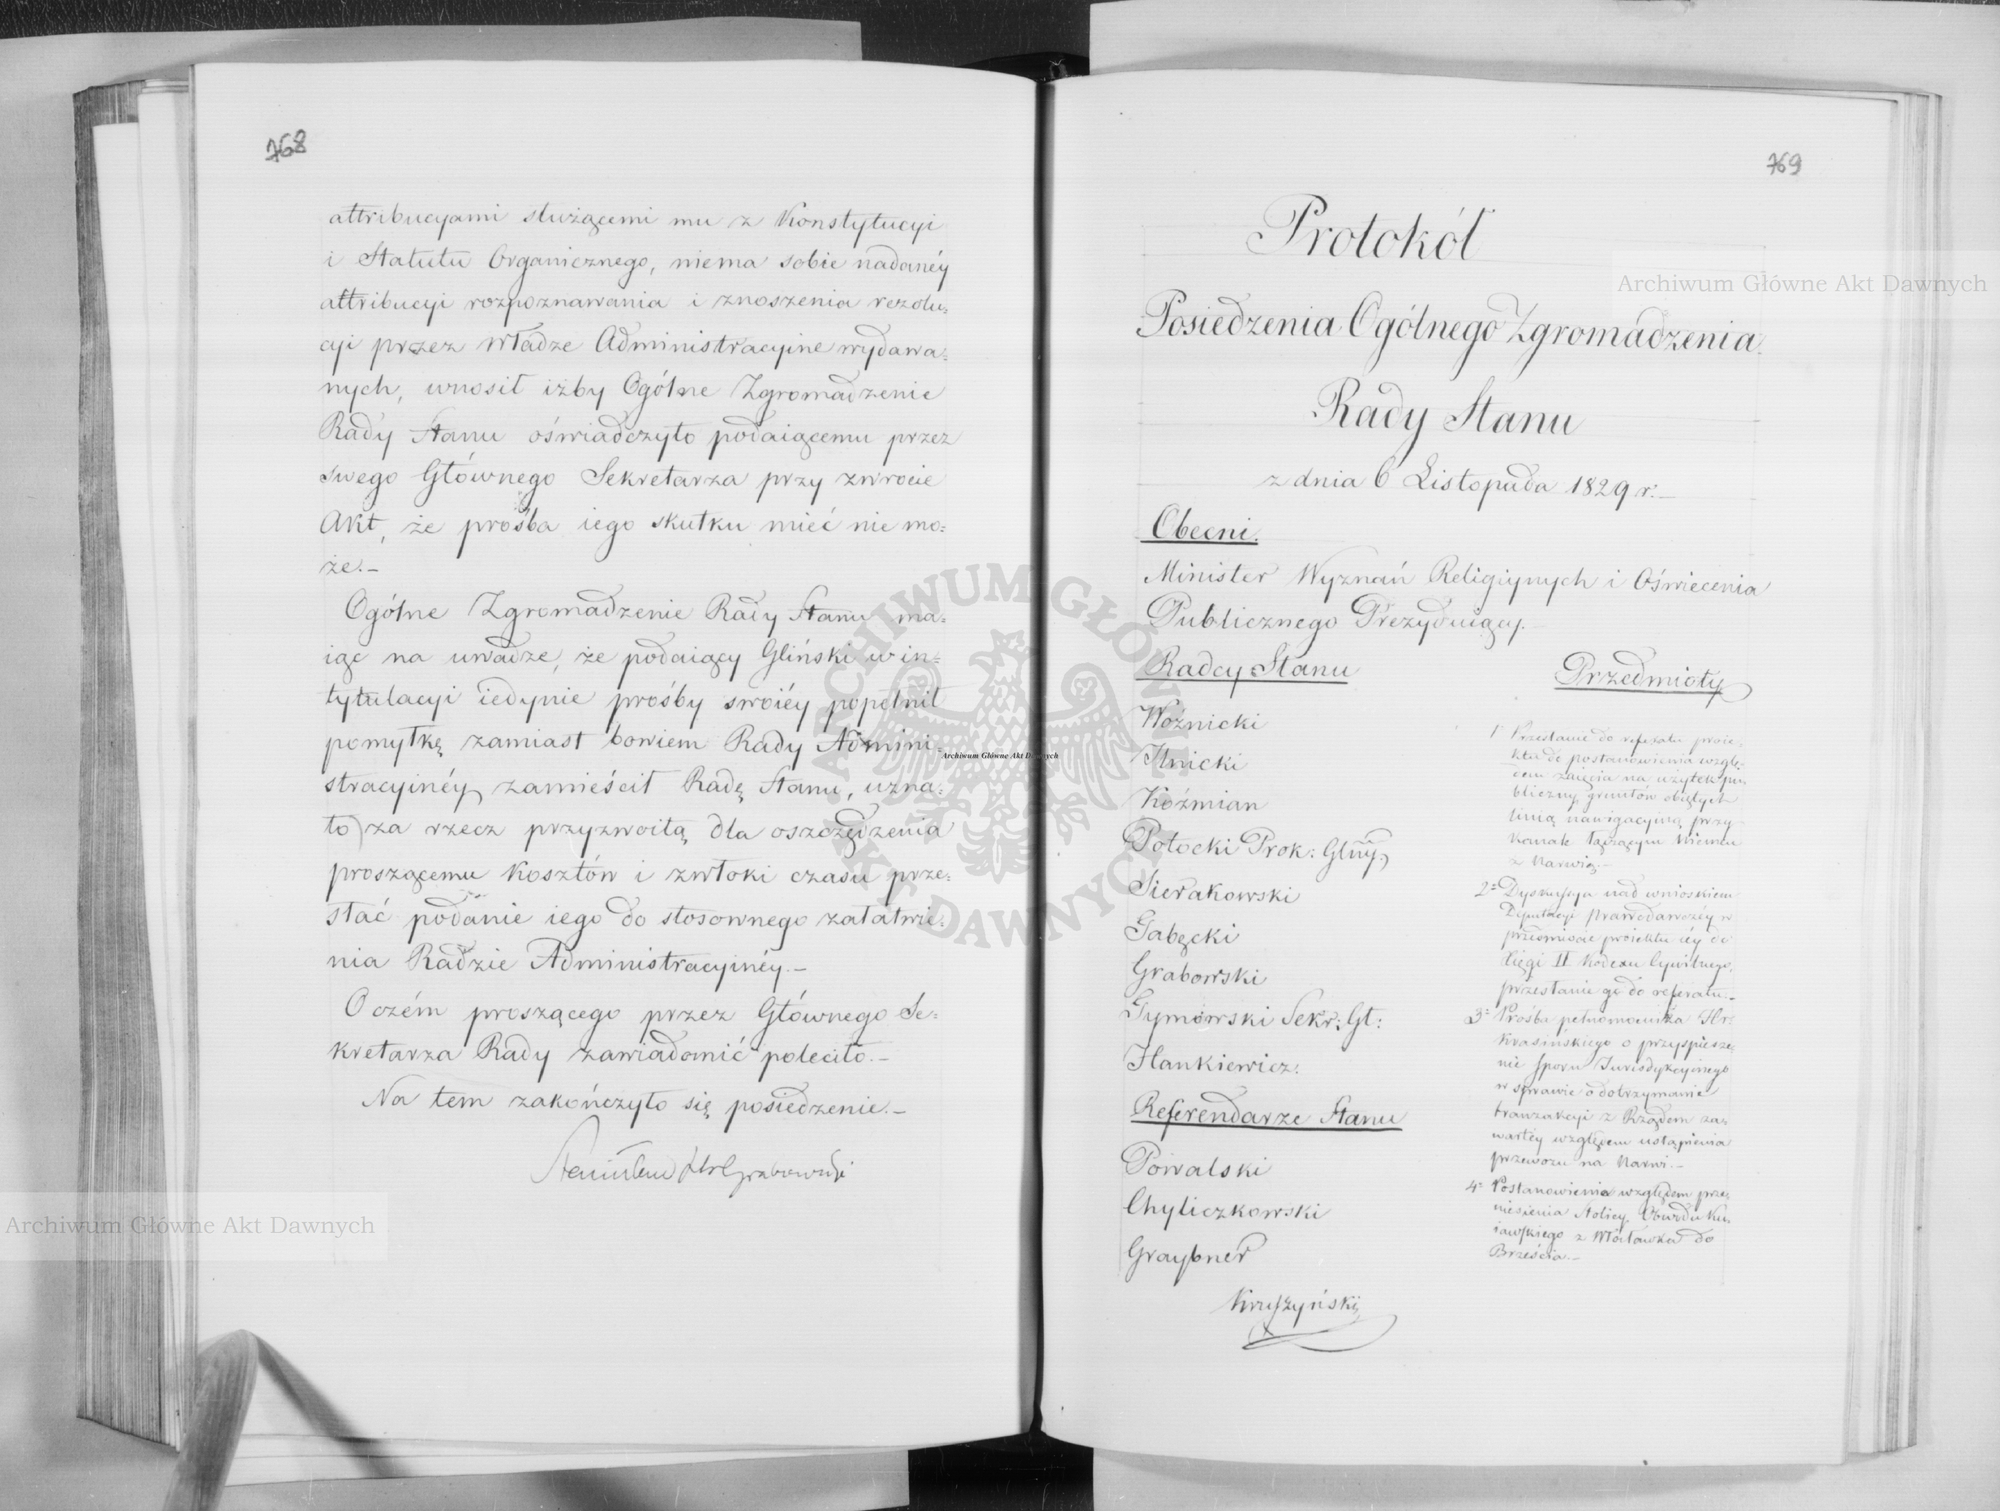 768
attribucyami służącemi mu z Konstytucyi
i Statutu Organicznego, niema sobie nadanéy
attribucyi rozpoznawania i znoszenia rezolu=
cyi przez Władze Administracyine wydawa=
nych, wnosił iżby Ogólne Zgromadzenie
Rady Stanu oświadczyło podaiącemu przez
swego Głównego Sekretarza przy zwrocie
Akt, że prośba iego skutku mieć nie mo=
że.–
Ogólne Zgromadzenie Rady Stanu ma=
iąc na uwadze, że podaiący Gliński w in=
tytulacyi iedynie prośby swoiéy popełnił
pomyłkę zamiast bowiem Rady Admini=
stracyinéy zamieścił Radę Stanu, uzna=
ło za rzecz przyzwoitą dla oszczędzenia
proszącemu Kosztów i zwłoki czasu prze=
słać podanie iego do stosownego załatwie=
nia Radzie Administracyinéy.–
O czém proszącego przez Głównego Se=
kretarza Rady zawiadomić poleciło.–
Na tem zakończyło się posiedzenie.–
Stanisław Hr Grabowski
769
Protokół
Posiedzenia Ogólnego Zgromadzenia
Rady Stanu
z dnia 6 Listopada 1829 r.–
Obecni.
Minister Wyznań Religiynych i Oświecenia
Publicznego Prezyduiący.–
Radcy Stanu
Woźnicki
Ilnicki
Koźmian
Potocki Prok: Glny,
Sierakowski
Gabęcki
Grabowski
Tymowski Sekr: Gł:
Hankiewicz.
Referendarze Stanu
Powalski
Chyliczkowski
Graybner
Kruszyński
Przedmioty
1 Przesłanie do referatu proie=
ktu do postanowienia wzglę=
dem zaięcia na użytek pu=
bliczny gruntów obiętych
linią nawigacyiną przy
Kanale łączącym Niemen
z Narwią.–
2= Dyskussya nad wnioskiem
Deputacyi prawodawczéy w
przedmiocie proiektu iéy do
Xięgi II Kodexu Cywilnego,
przesłanie go do referatu.–
3= Prośba pełnomocnika Hr:
Krasińskiego o przyspiesze=
nie sporu Jurisdykcyinego
w sprawie o dotrzymanie
tranzakcyi z Rządem za=
wartéy względem ustąpienia
przewozu na Narwi.–
4= Postanowienie względem prze=
niesienia Stolicy Obwodu Ku=
iawskiego z Włocławka do
Brześcia.–
Archiwum Główne Akt Dawnych
Archiwum Główne Akt Dawnych
Archiwum Główne Akt Dawnych
ARCHIWUM GŁÓWNE AKT DAWNYCH